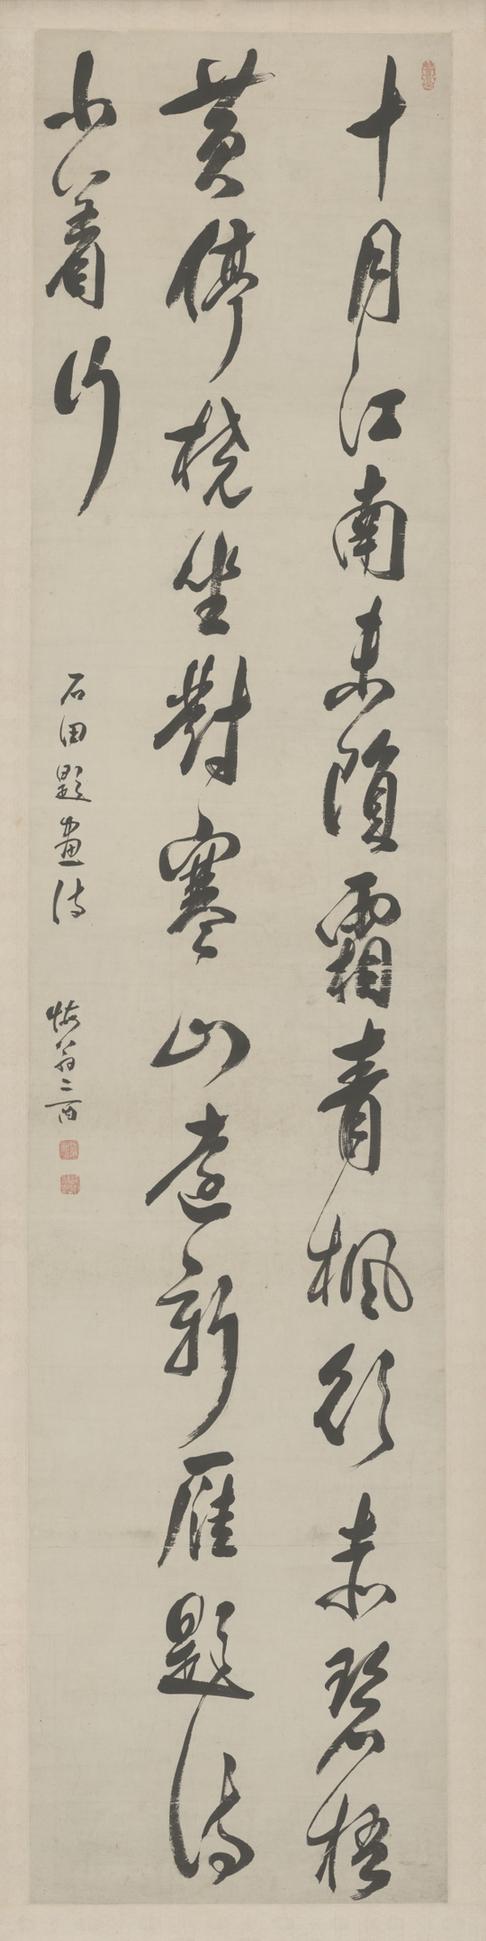 十月江南未隕霜青楓欲赤碧梧
黃停橈坐對寒山遠新雁題詩
小着行
石田題畫詩
悔翁二西